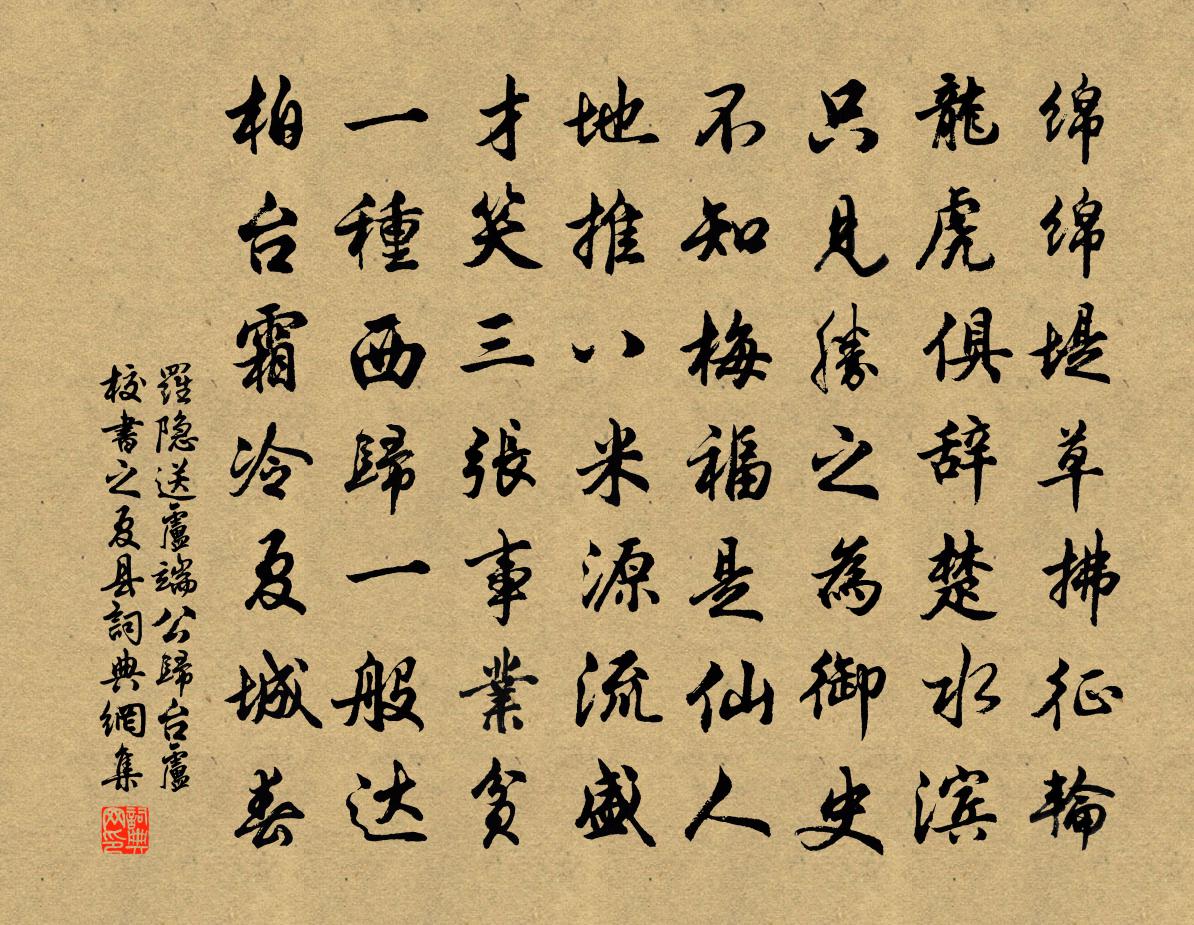 绵绵堤草拂征輪
龍虎俱辞楚水滨
只見勝之為御史
不知梅福是仙人
地推八米源流盛
才笑三張事業貧
一種西歸一般达
柏台霜冷夏城春
羅隐送盧端公歸台盧
校書之夏县詞典網集
詞典
网印